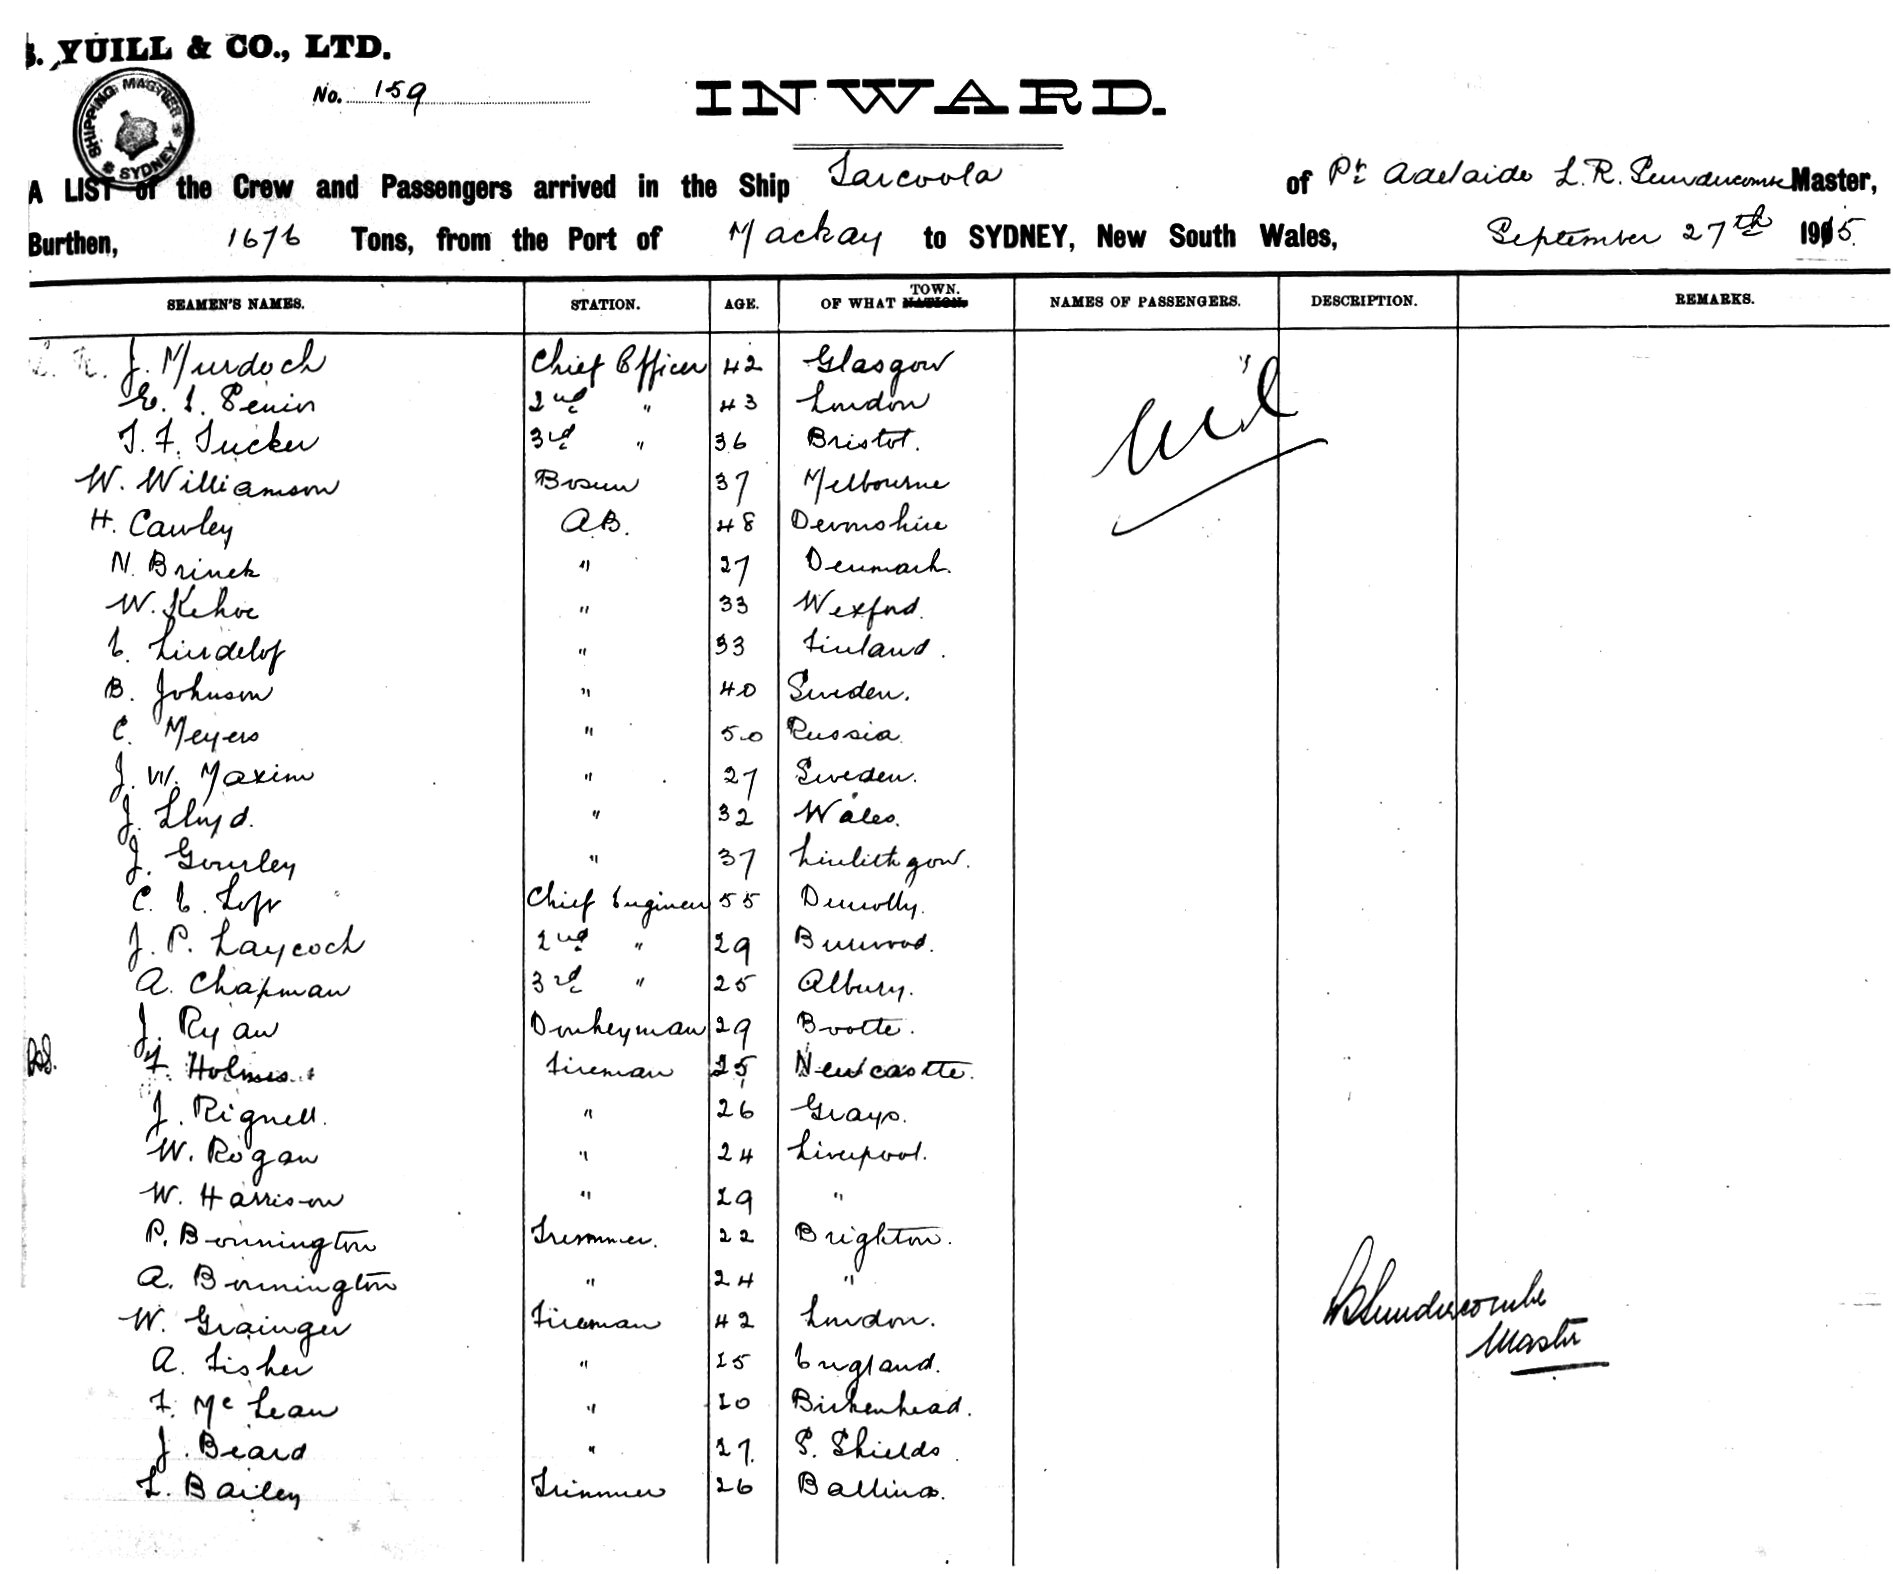 . YUILL & CO., LTD.
SHIPPING MASTER SYDNEY
No. 159
INWARD.
A LIST of the Crew and Passengers arrived in the Ship Tarcoola of Pt Adelaide L. R. Sundercombe Master,
Burthen, 1676 Tons, from the Port of Mackay to SYDNEY, New South Wales, September 27th 1915.
SEAMEN'S NAMES. STATION. AGE. OF WHAT NATION. TOWN. NAMES OF PASSENGERS. DESCRIPTION. REMARKS.
J. Murdoch Chief Officer 42 Glasgow Nil
E. I. Senior 2nd " 43 London
T. F. Tucker 3rd " 36 Bristol.
W. Williamson Bosun 37 Melbourne
H. Cawley A.B. 48 Devonshire
N. Brinck " 27 Denmark.
W. Kehoe " 33 Wexford.
E. Lindelof " 33 Finland.
B. Johnson " 40 Sweden.
C. Meyers " 50 Russia.
J. W. Maxim " 27 Sweden.
J. Lloyd. " 32 Wales.
J. Gourley " 37 Linlithgow.
C. E. Chief Engineer 55 Dunolly.
J. P. Laycock 2nd " 29 Burwood.
A. Chapman 3rd " 25 Albury.
J. Ryan Donkeyman 29 Bootle.
F. Holmes Fireman 25 Newcastle.
J. Rignell. " 26 Grays.
W. Rogan " 24 Liverpool.
W. Harrison " 29 "
P. Bonnington Tremmer. 22 Brighton.
A. Bonnington " 24 "
W. Grainger Fireman 42 London.
A. Fisher " 25 England.
F. McLean " 20 Birkenhead.
J. Beard " 27. S. Shields
L. Bailey Trimmer 26 Ballina.
Sundercombe
Master